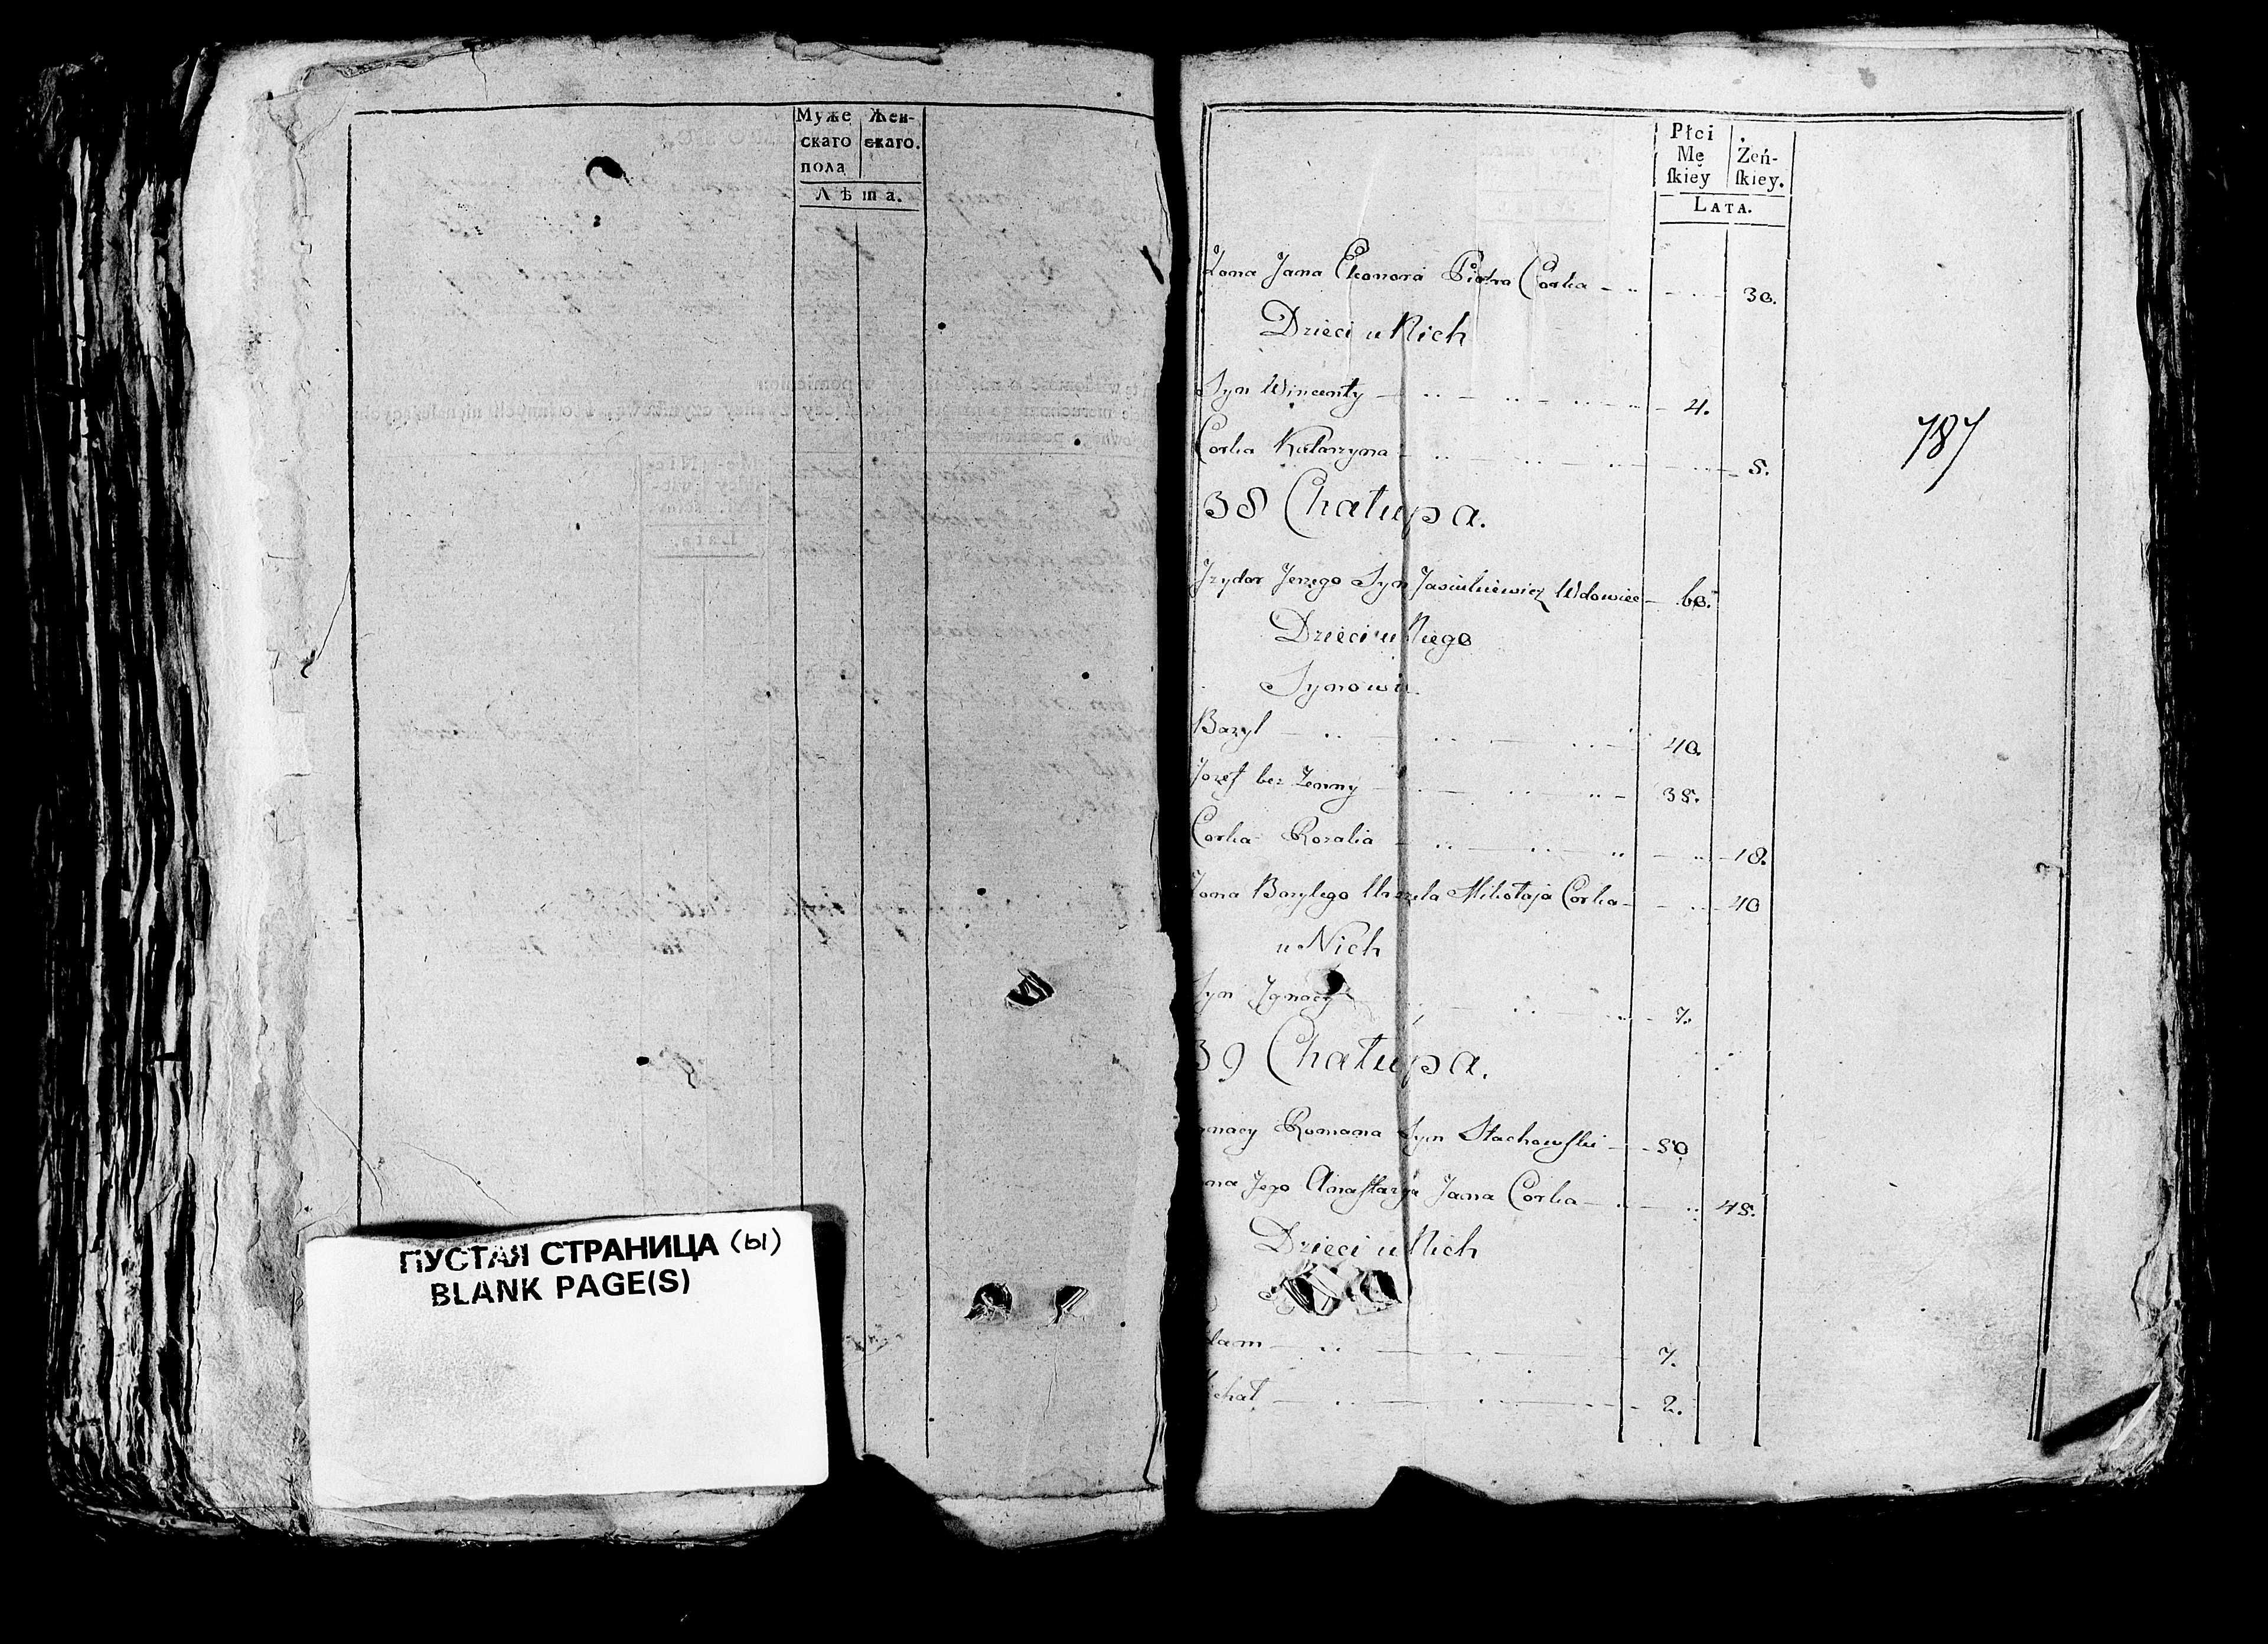 Муже
скаго
пола
Жен-
скаго.
Лѣта.
ПУСТАЯ СТРАНИЦА (ы)
BLANK PAGE(S)
Płci
Mę
ſkiey
Żeń-
ſkiey.
LATA.
787
Zona Jana Eleonora Piotra Corka 30.
Dzieci u Nich
Syn Wincenty 4.
Corka Katarzyna
38 Chałupa.
Jzydor Jerzego Syn Wdowiec 60.
Dzieci u Niego
Synowie
Bazyl 40.
Jozef bez Zenny
Corka Rozalia 18.
Zona Bazylego Mikołaja Corka 40
u Nich
Syn Ignacy 7.
39 Chałupa.
gnacy Romana Syn Stachowſki 50
na Jego Anaſtazya Jana Corka
Dzieci u Nich
dam 7.
ichał 2.